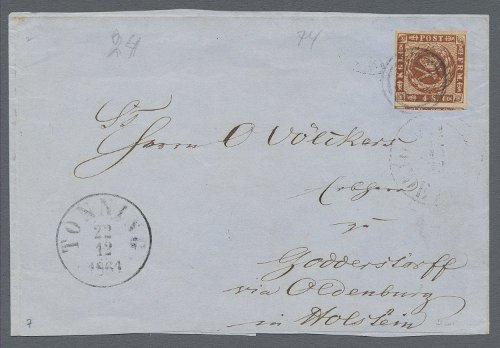 24
74
KGL POST FRM
4 S.
Sr
Herrn O Völckers
Erbherr
zu
Godderstorff
via Oldenburg
in Holstein
TONNING
22
12
1861
7